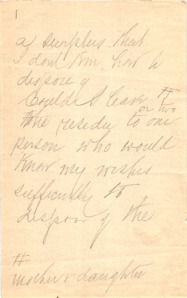 1
of surplus that
I don't know how to
dispose of
Could I leave it
or two
the residue to one
person who would
know my wishes
sufficiently to
dispose of the
#
mother & daughter